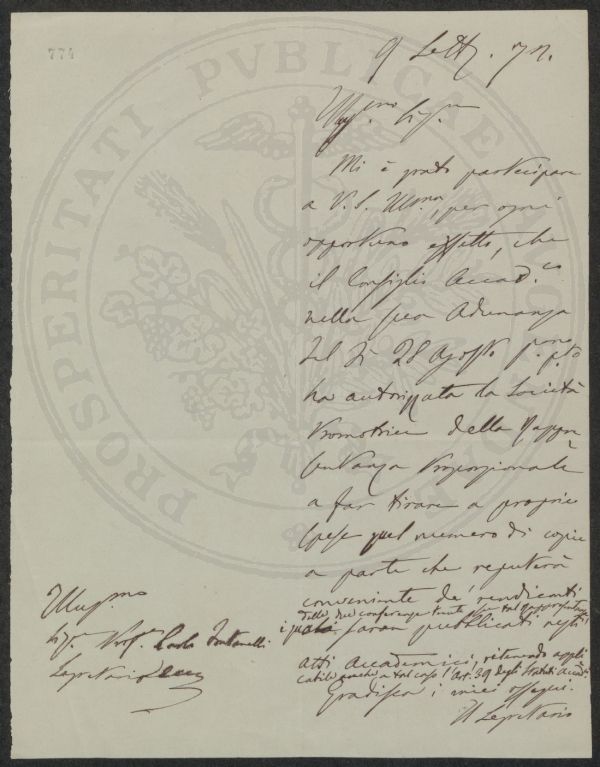 774
9 Sett. 72.
Ill.mo Sig.re
Mi è grato partecipare
a V. S. Ill.ma, per ogni
opportuno effetto, che
il Consiglio Accad.co
nella sua Adunanza
del dì 28 Agosto p.mo p.to
ha autorizzata la Società
Promotrice della Rappre
sentanza Proporzionale
a far tirare a proprie
spese quel numero di copie
a parte che reputerà
conveniente de' rendiconti
delle due conferenze tenute per tal rappresentanza
i quali saran pubblicati negli
Atti Accademici, ritenendo appli
cabile anche a tal caso l'Art. 39 degli Statuti Accad.ci
Gradisca i miei ossequi.
Il Segretario
Illus.mo
Sig.r Prof. Carlo Fontanelli
Segretario
PROSPERITATI PVBLICAE